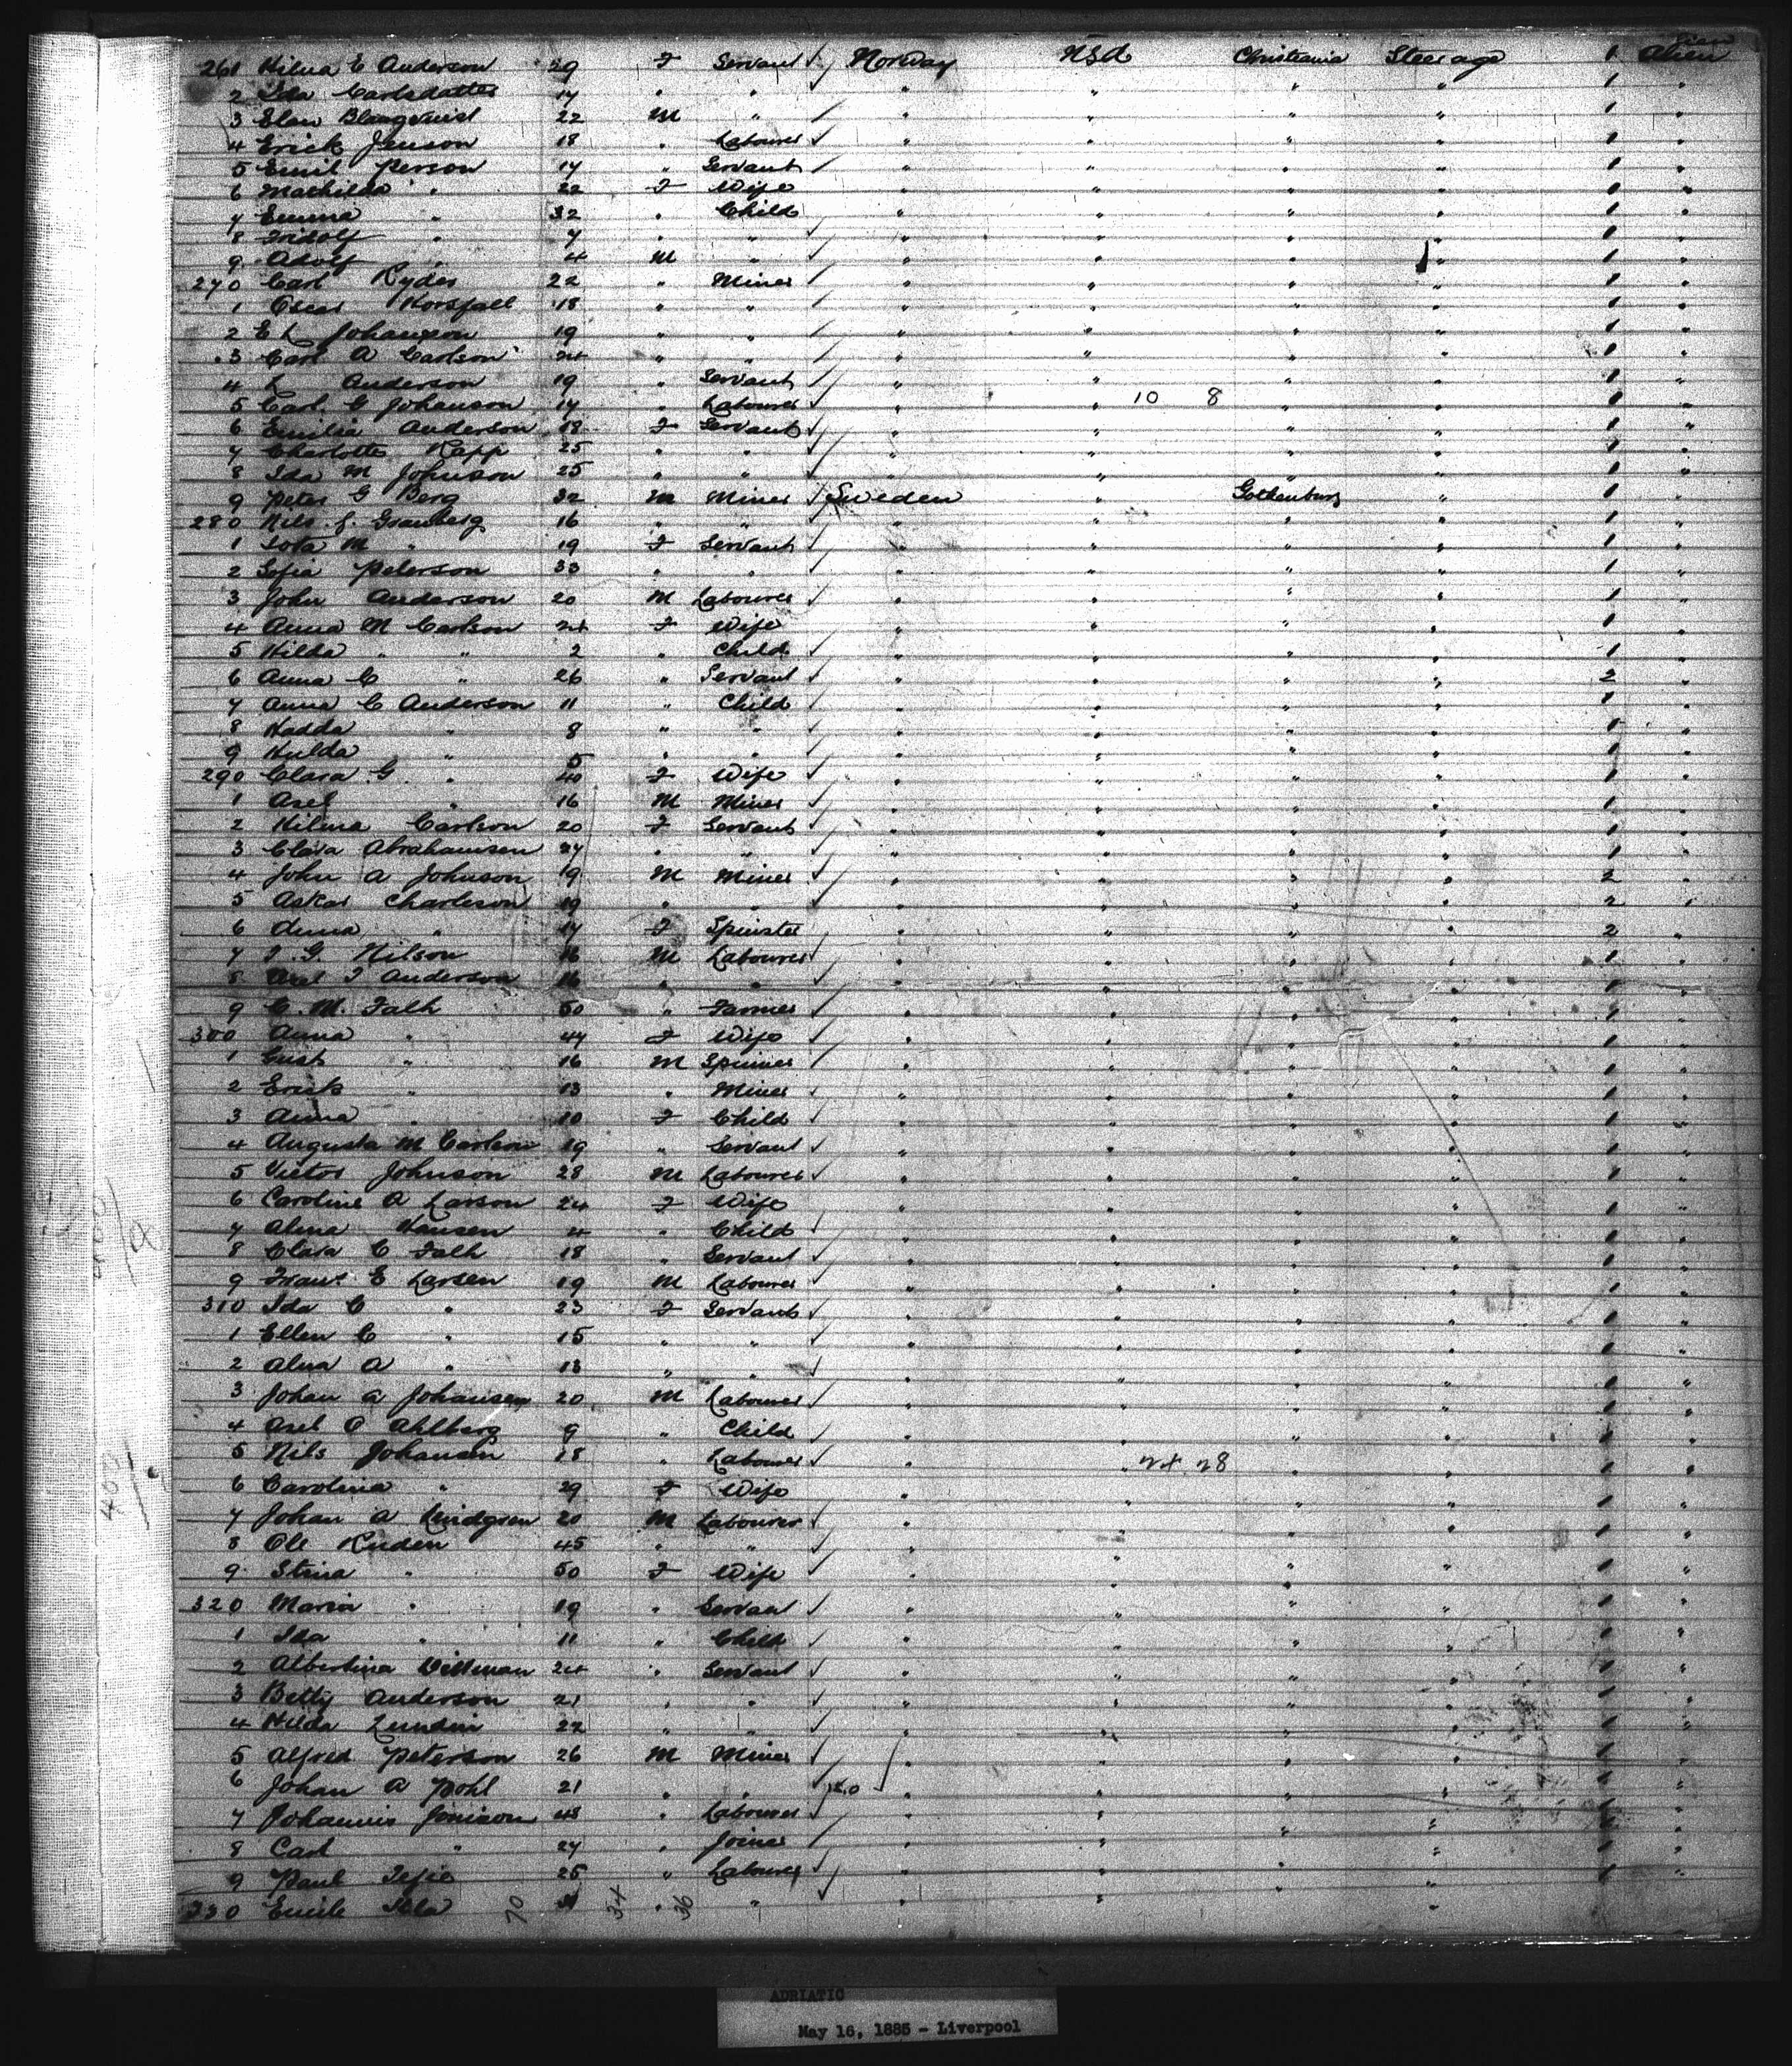 261 Hilma C Anderson 29 F Servant Norway USA Christiania Steerage 1 Alien
2 Ida Carlsdatter 17 " " " " " " 1 "
3 Elan Blangquist 22 M " " " " " 1 "
4 Erick Jenson 18 " Labourer " " " " 1 "
5 Emil Person 17 " Servant " " " " 1 "
6 Mathilda " 22 F Wife " " " " 1 "
7 Emma " 32 " Child " " " " 1 "
8 Fridolf " 7 " " " " " " 1 "
9 Adolf " 4 M " " " " " 1 "
270 Carl Ryder 22 " Miner " " " " 1 "
1 Oscar Horsfall 18 " " " " " " 1 "
2 E L Johanson 19 " " " " " " 1 "
3 Carl A Carlson 24 " " " " " " 1 "
4 L Anderson 19 " Servant " " " " 1 "
5 Carl G Johanson 17 " Labourer " " 10 8 " " 1 "
6 Emilia Anderson 18 F Servant " " " " 1 "
7 Charlotte Kapp 25 " " " " " " 1 "
8 Ida M Johnson 25 " " " " " " 1 "
9 Peter G Berg 32 M Miner Sweden " Gothenburg " 1 "
280 Nils J. Granberg 16 " " " " " " 1 "
1 Lota M " 19 F Servant " " " " 1 "
2 Sofia Peterson 33 " " " " " " 1 "
3 John Anderson 20 M Labourer " " " " 1 "
4 Anna M Carlson 24 F Wife " " " " 1 "
5 Hilda " " 2 " Child " " " " 1 "
6 Anna C " 26 " Servant " " " " 2 "
7 Anna C Anderson 11 " Child " " " " 1 "
8 Hadda " 8 " " " " " " 1 "
9 Hulda " 5 " " " " " " 1 "
290 Clara G " 40 F Wife " " " " 1 "
1 Axel " 16 M Miner " " " " 1 "
2 Hilma Carlson 20 F Servant " " " " 1 "
3 Clara Abrahamsen 27 " " " " " " 1 "
4 John A Johnson 19 M Miner " " " " 2 "
5 Askar Charleson 19 " " " " " " 2 "
6 Anna " 17 F Spinster " " " " 2 "
7 J. G. Nilson 16 M Labourer " " " " 1 "
8 Axel F Anderson 16 " " " " " " 1 "
9 C. M. Falh 50 " Farmer " " " " 1 "
300 Anna " 44 F Wife " " " " 1 "
1 Gust " 16 M Spinner " " " " 1 "
2 Erick " 13 " Miner " " " " 1 "
3 Anna " 10 F Child " " " " 1 "
4 Augusta M Carlson 19 " Servant " " " " 1 "
5 Victor Johnson 28 M Labourer " " " " 1 "
6 Caroline A Larson 24 F Wife " " " " 1 "
7 Alma Hansen 4 " Child " " " " 1 "
8 Clara C Falh 18 " Servant " " " " 1 "
9 Frans E Larsen 19 M Labourer " " " " 1 "
310 Ida C " 23 F Servant " " " " 1 "
1 Ellen C " 15 " " " " " " 1 "
2 Alma A " 13 " " " " " " 1 "
3 Johan A Johansen 20 M Labourer " " " " 1 "
4 Axel O Ahlberg 9 " Child " " " " 1 "
5 Nils Johansen 18 " Labourer " " 24 28 " " 1 "
6 Carolina " 29 F Wife " " " " 1 "
7 Johan A Lindgren 20 M Labourer " " " " 1 "
8 Ole Ruden 45 " " " " " " 1 "
9 Stina " 50 F Wife " " " " 1 "
320 Maria " 19 " Servant " " " " 1 "
1 Ida " 11 " Child " " " " 1 "
2 Albertina Willman 24 " Servant " " " " 1 "
3 Betty Anderson 21 " " " " " " 1 "
4 Hilda Lundin 22 " " " " " " 1 "
5 Alfred Peterson 26 M Miner " " " " 1 "
6 Johan A Pohl 21 " " " " " " 1 "
7 Johannis Jonison 48 " Labourer " " " " 1 "
8 Carl " 27 " Joiner " " " " 1 "
9 Paul 25 " Labourer " " " " 1 "
330 Emile 70 34 " 36 " " " "
ADRIATIC
May 16, 1885 - Liverpool